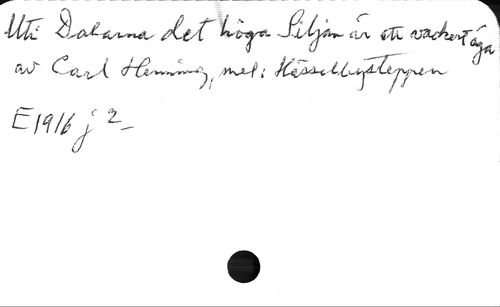 Uti Dalarna det höga Siljan är ett vackert äga
av Carl Henning, mel: Hässelbysteppen
E1916 j 2